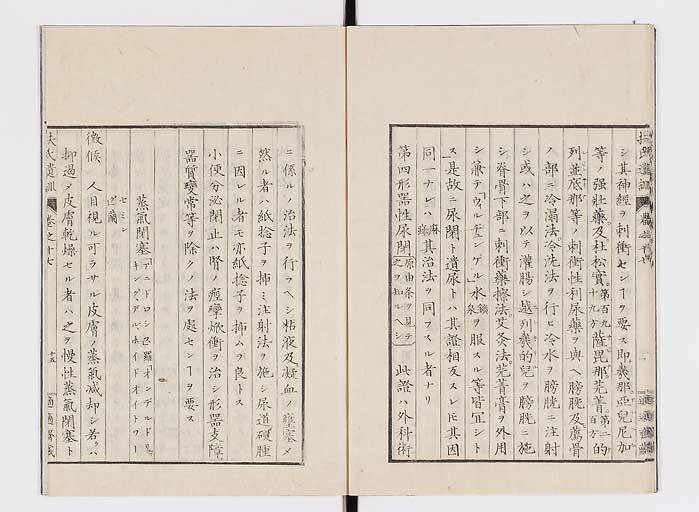 シ其神經ヲ刺衝センヿヲ要ス即羲那亞兒尼加
等ノ強壯藥及杜松實第百九十九方薩毘那芫菁第二百方的
列並底那等ノ刺衝性利尿藥ヲ與ヘ膀胱及薦骨
ノ部ニ冷溻法冷洗法ヲ行ヒ冷水ヲ膀胱ニ注射
シ或ハ之ヲ以テ灌腸シ越列羲的兒ヲ膀胱ニ施
シ脊骨下部ニ刺衝藥擦法艾灸法芫菁膏ヲ外用
シ兼テウヰルヂュンゲル水鑛泉ヲ服スル等皆宜シト
ス是故ニ尿閉ト遺尿トハ其證相反スレ𪜈其因
同一ナレハ麻痺其治法ヲ同フスル者ナリ
第四形器性尿閉原由条ヲ見テ之ヲ知ルヘシ 此證ハ外科術
ニ係ルノ治法ヲ行フヘシ粘液及凝血ノ壅塞メ
然ル者ハ紙捻子ヲ挿ミ注射法ヲ施シ尿道硬腫
ニ因レル者モ亦紙捻子ヲ挿ムヲ良トス
小便分泌閉止ハ腎ノ痙攣焮衝ヲ治シ形器支障
器質變常等ヲ除クノ法ヲ處センヿヲ要ス
蒸氣閉塞
徴候 人目視ル可ラサル皮膚ノ蒸氣減却シ若クハ
抑遏メ皮膚乾燥セル者ハ之ヲ慢性蒸氣閉塞ト
扶氏遺訓 卷之十七 十五